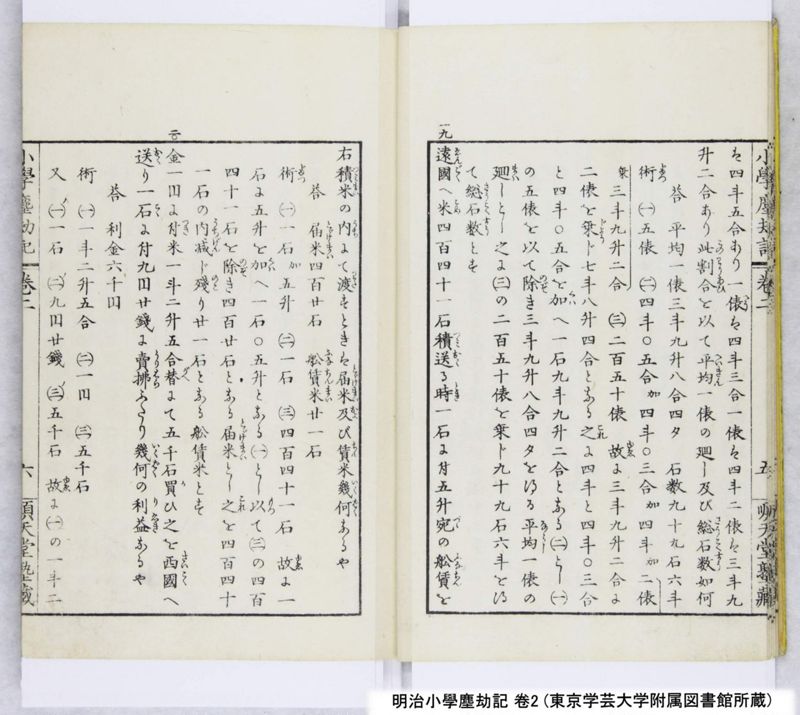 小學塵劫記 卷二 五 順天堂塾藏
は四斗五合あり一俵は四斗三合一俵は四斗二俵は三斗九
升二合あり此割合を以て平均一俵の廻し及び総石數如何
答 平均一俵三斗九升八合四夕 石數九十九石六斗
術 ㈠五俵 ㈡四斗〇五合加四斗〇三合加四斗加二俵
乗三斗九升二合 ㈢二百五十俵 故に三斗九升二合に
二俵を乗し七斗八升四合となる之に四斗と四斗〇三合
と四斗〇五合を加へ一石九斗九升二合となる㈡とし㈠
の五俵を以て除き三斗九升八合四夕を得る平均一俵の
廻しとし之に㈢の二百五十俵を乗し九十九石六斗を得
て総石數とす
一九
遠國へ米四百四十一石積送る時一石に付五升宛の舩賃を
右積米の内にて渡すときは届米及び賃米幾何なるや
答 届米四百廿石 舩賃米廿一石
術 ㈠一石加五升 ㈡一石 ㈢四百四十一石 故に一
石に五升を加へ一石〇五升となる㈠とし以て㈢の四百
四十一石を除き四百廿石となる届米とし之を四百四十
一石の内減し殘り廿一石となる舩賃米とす
二〇
金一円に付米一斗二升五合替にて五千石買ひ之を西國へ
送り一石に付九円廿錢に賣拂ふたり幾何の利益なるや
答 利金六千円
術 ㈠一斗二升五合 ㈡一円 ㈢五千石
又 ㈠一石 ㈡九円廿錢 ㈢五千石 故に㈠の一斗二
小學塵劫記 卷二 六 順天堂塾藏
明治小學塵劫記 巻2 (東京学芸大学附属図書館所蔵)